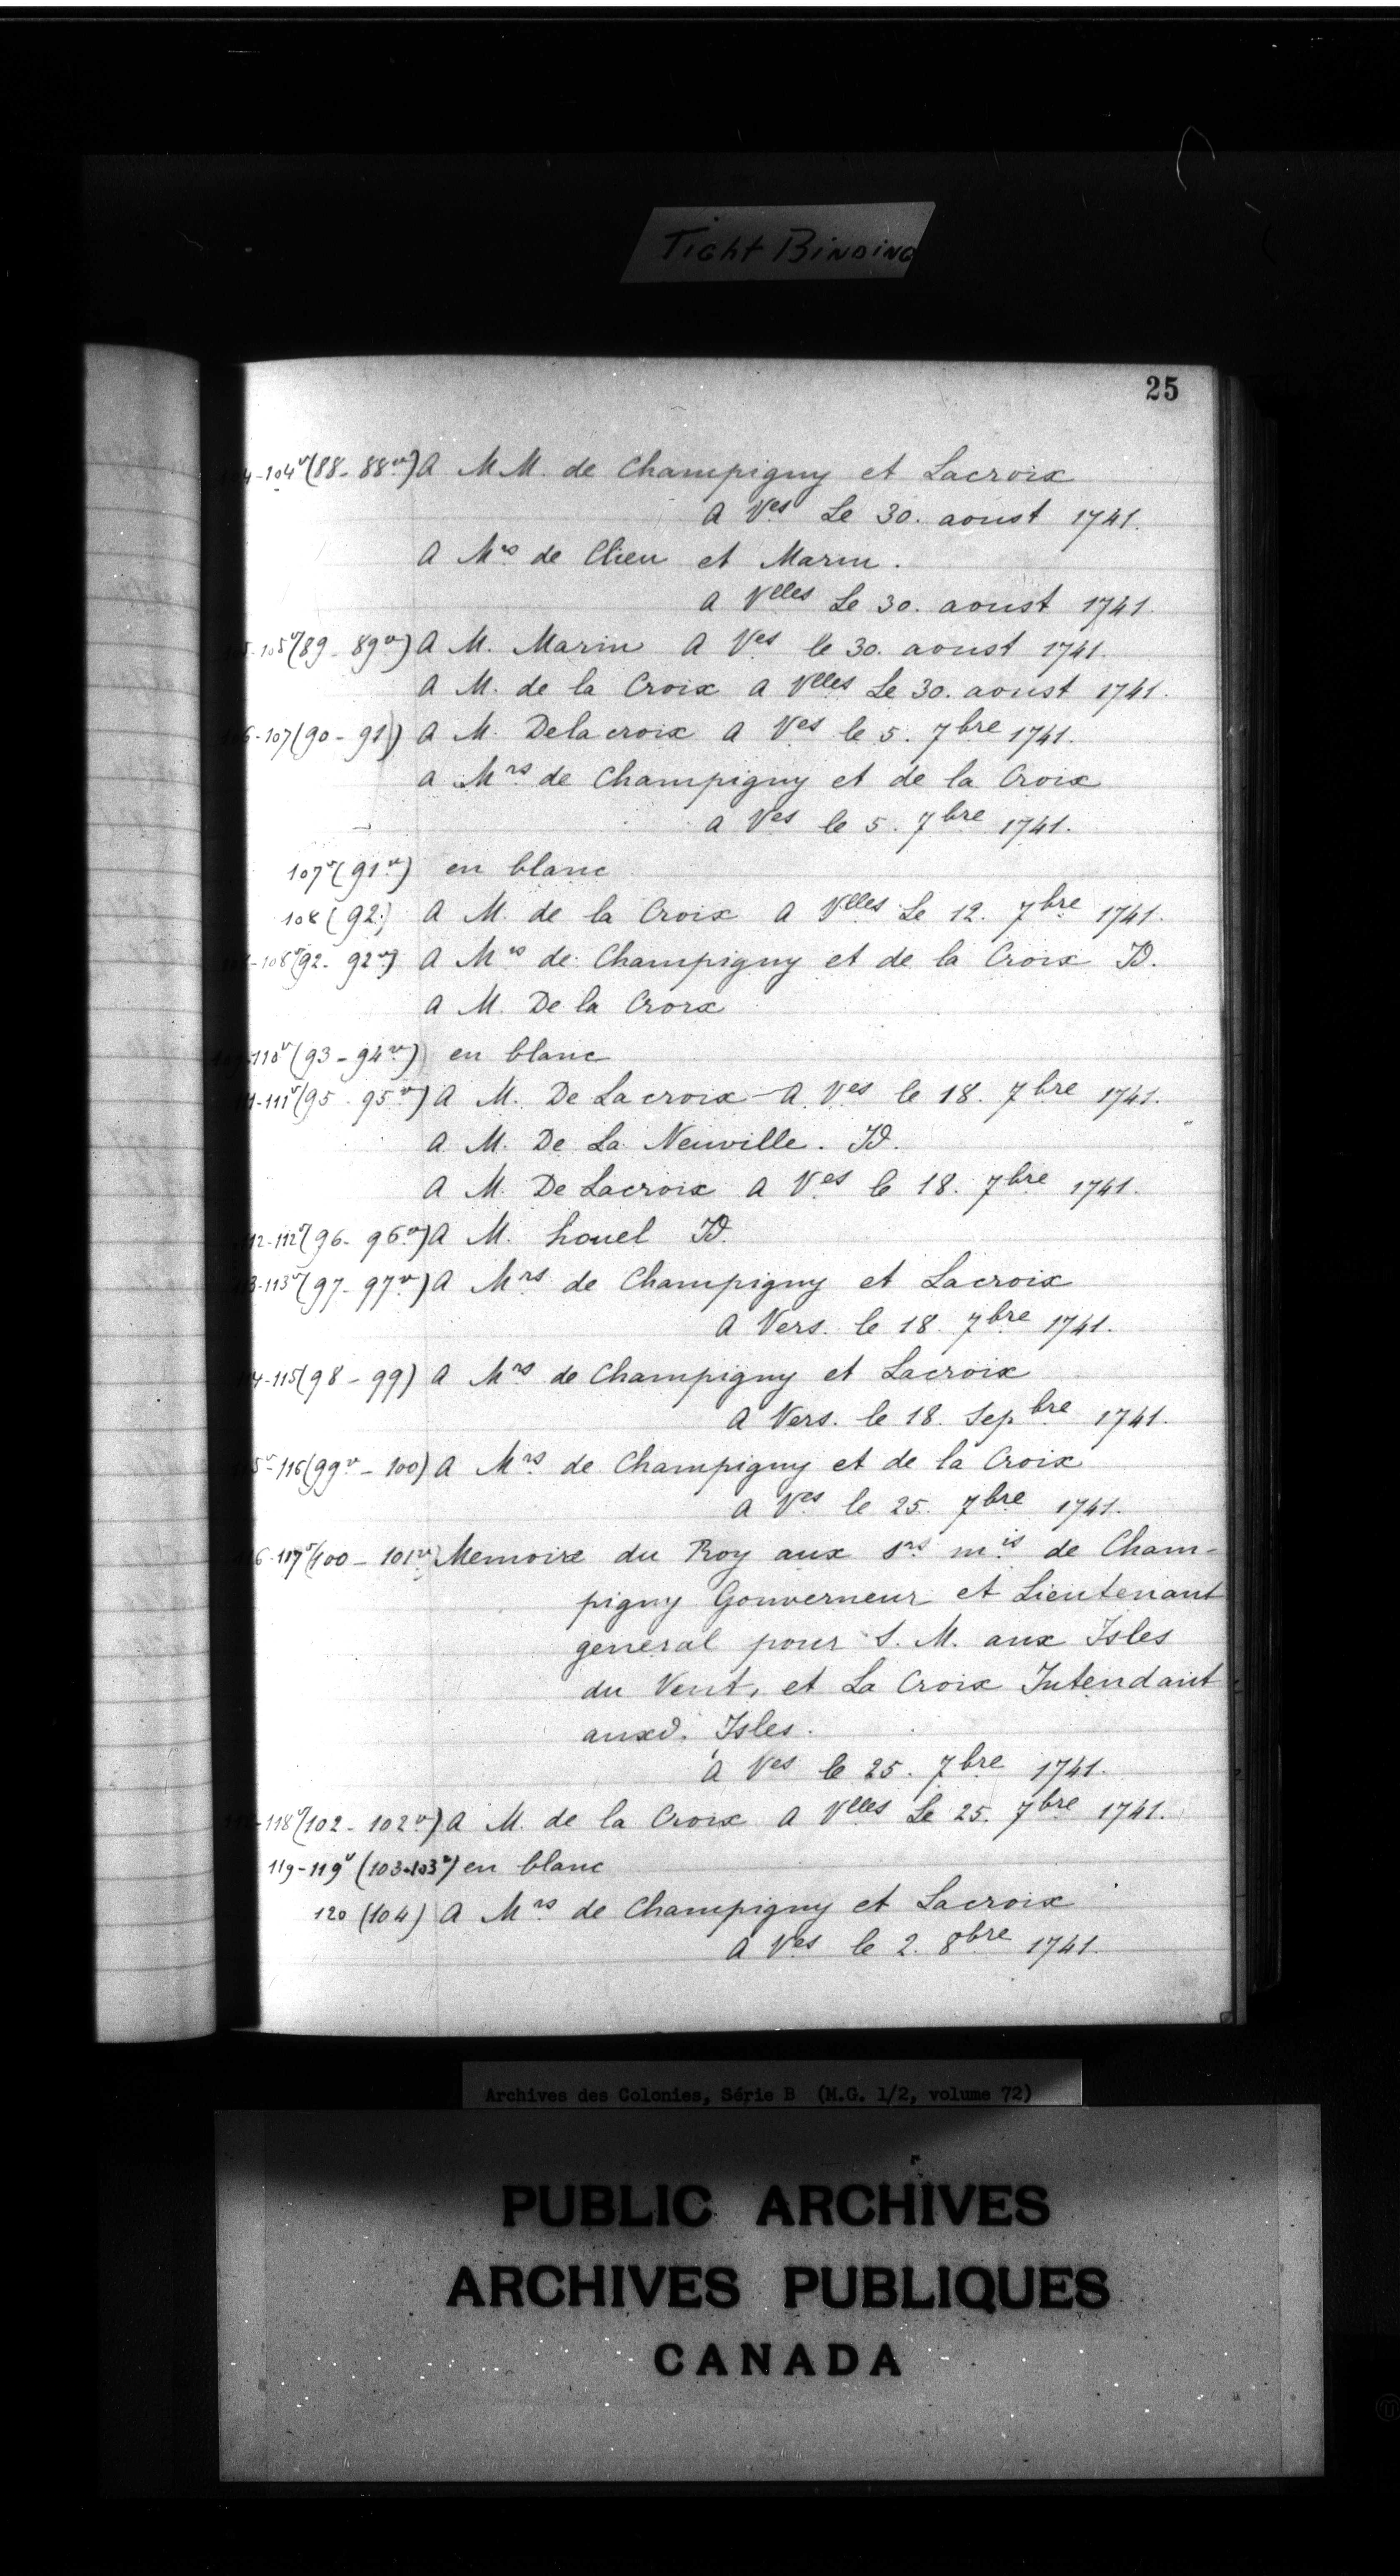 Tight Binding
25
104-104v (88-88vo) A MM. de Champigny et Lacroix
A Ves Le 30. aoust 1741.
A Mrs de Clieu et Marin.
a Vlles Le 30. aoust 1741.
105v (89-89vo) A M. Marin A Ves le 30. aoust 1741.
A M. de la Croix a Vlles Le 30. aoust 1741.
107 (90-91) A M. Delacroix A Ves le 5. 7bre 1741.
a Mrs de Champigny et de la Croix
a Ves le 5. 7bre 1741.
107v (91vo) en blanc
108 (92) A M. de la Croix A Vlles Le 12. 7bre 1741.
108v (92-92vo) A Mrs de Champigny et de la Croix Id.
A M. De la Croix
110v (93-94vo) en blanc
111v (95-95vo) A M. De Lacroix A Ves le 18. 7bre 1741.
A M. De La Neuville. Id.
A M. De Lacroix A Ves le 18. 7bre 1741.
112v (96-96vo) A M. houel Id.
113v (97-97vo) A Mrs de Champigny et Lacroix
A Vers. le 18. 7bre 1741.
115 (98-99) A Mrs de Champigny et Lacroix
A Vers. le 18. Sepbre 1741.
116 (99vo-100) A Mrs de Champigny et de la Croix
A Ves le 25. 7bre 1741.
117v (100-101vo) Memoire du Roy aux srs mis de Cham-
pigny Gouverneur et Lieutenant
general pour S. M. aux Isles
du Vent, et La Croix Intendant
auxd. Isles.
à Ves le 25. 7bre 1741.
118v (102-102vo) A M. de la Croix A Vlles Le 25. 7bre 1741.
119-119v (103-103v) en blanc
120 (104) A Mrs de Champigny et Lacroix
A Ves le 2. 8bre 1741.
Archives des Colonies, Série B (M.G. 1/2, volume 72)
PUBLIC ARCHIVES
ARCHIVES PUBLIQUES
CANADA